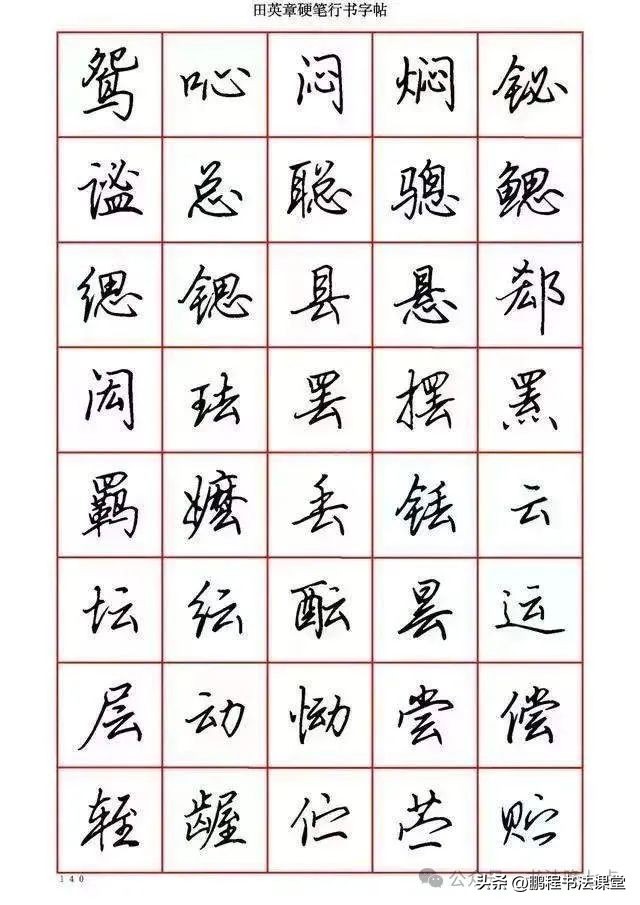 田英章硬笔行书字帖
鸳 吣 闷 焖 铋
谧 总 聪 骢 鳃
缌 锶 县 悬 郄
闳 珐 罢 摆 罴
羁 嬷 丢 铥 云
坛 纭 酝 昙 运
层 动 恸 尝 偿
轾 龌 伫 苎 贮
140
公众号
头条@鹏程书法课堂